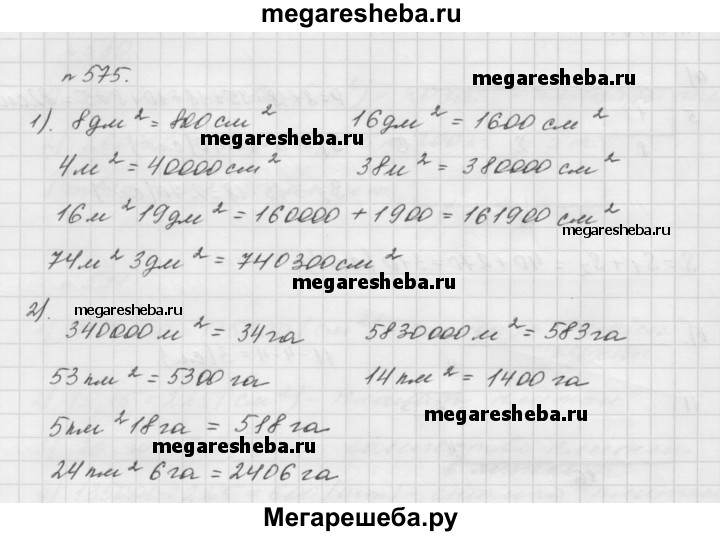 megaresheba.ru
n 575.
megaresheba.ru
1). 8дм² = 800см² 16дм² = 1600см²
megaresheba.ru
4м² = 40000см² 38м² = 380000см²
16м² 19дм² = 160000 + 1900 = 161900см²
megaresheba.ru
74м² 3дм² = 740300см²
megaresheba.ru
2). megaresheba.ru
340000м² = 34га 5830000м² = 583га
53км² = 5300га 14км² = 1400га
megaresheba.ru
5км² 18га = 518га
megaresheba.ru
24км² 6га = 2406га
Мегарешеба.ру